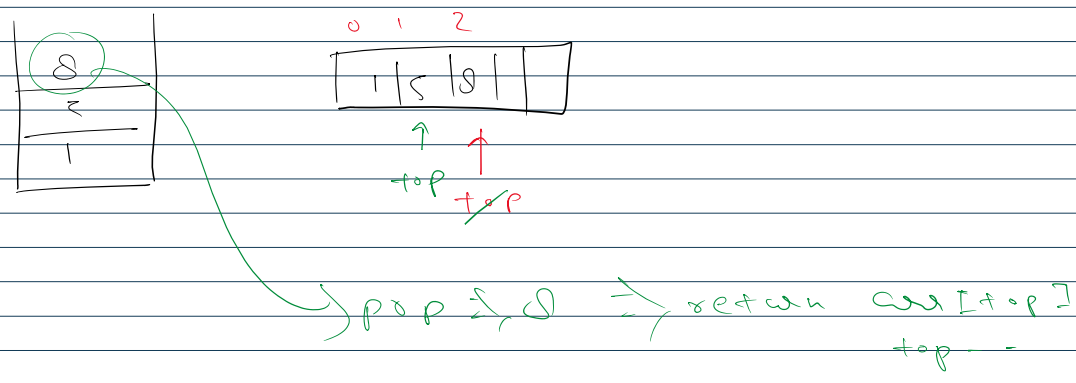 0 1 2
8
1 5 8
1
top
top
pop => 8 => return arr[top]
top--